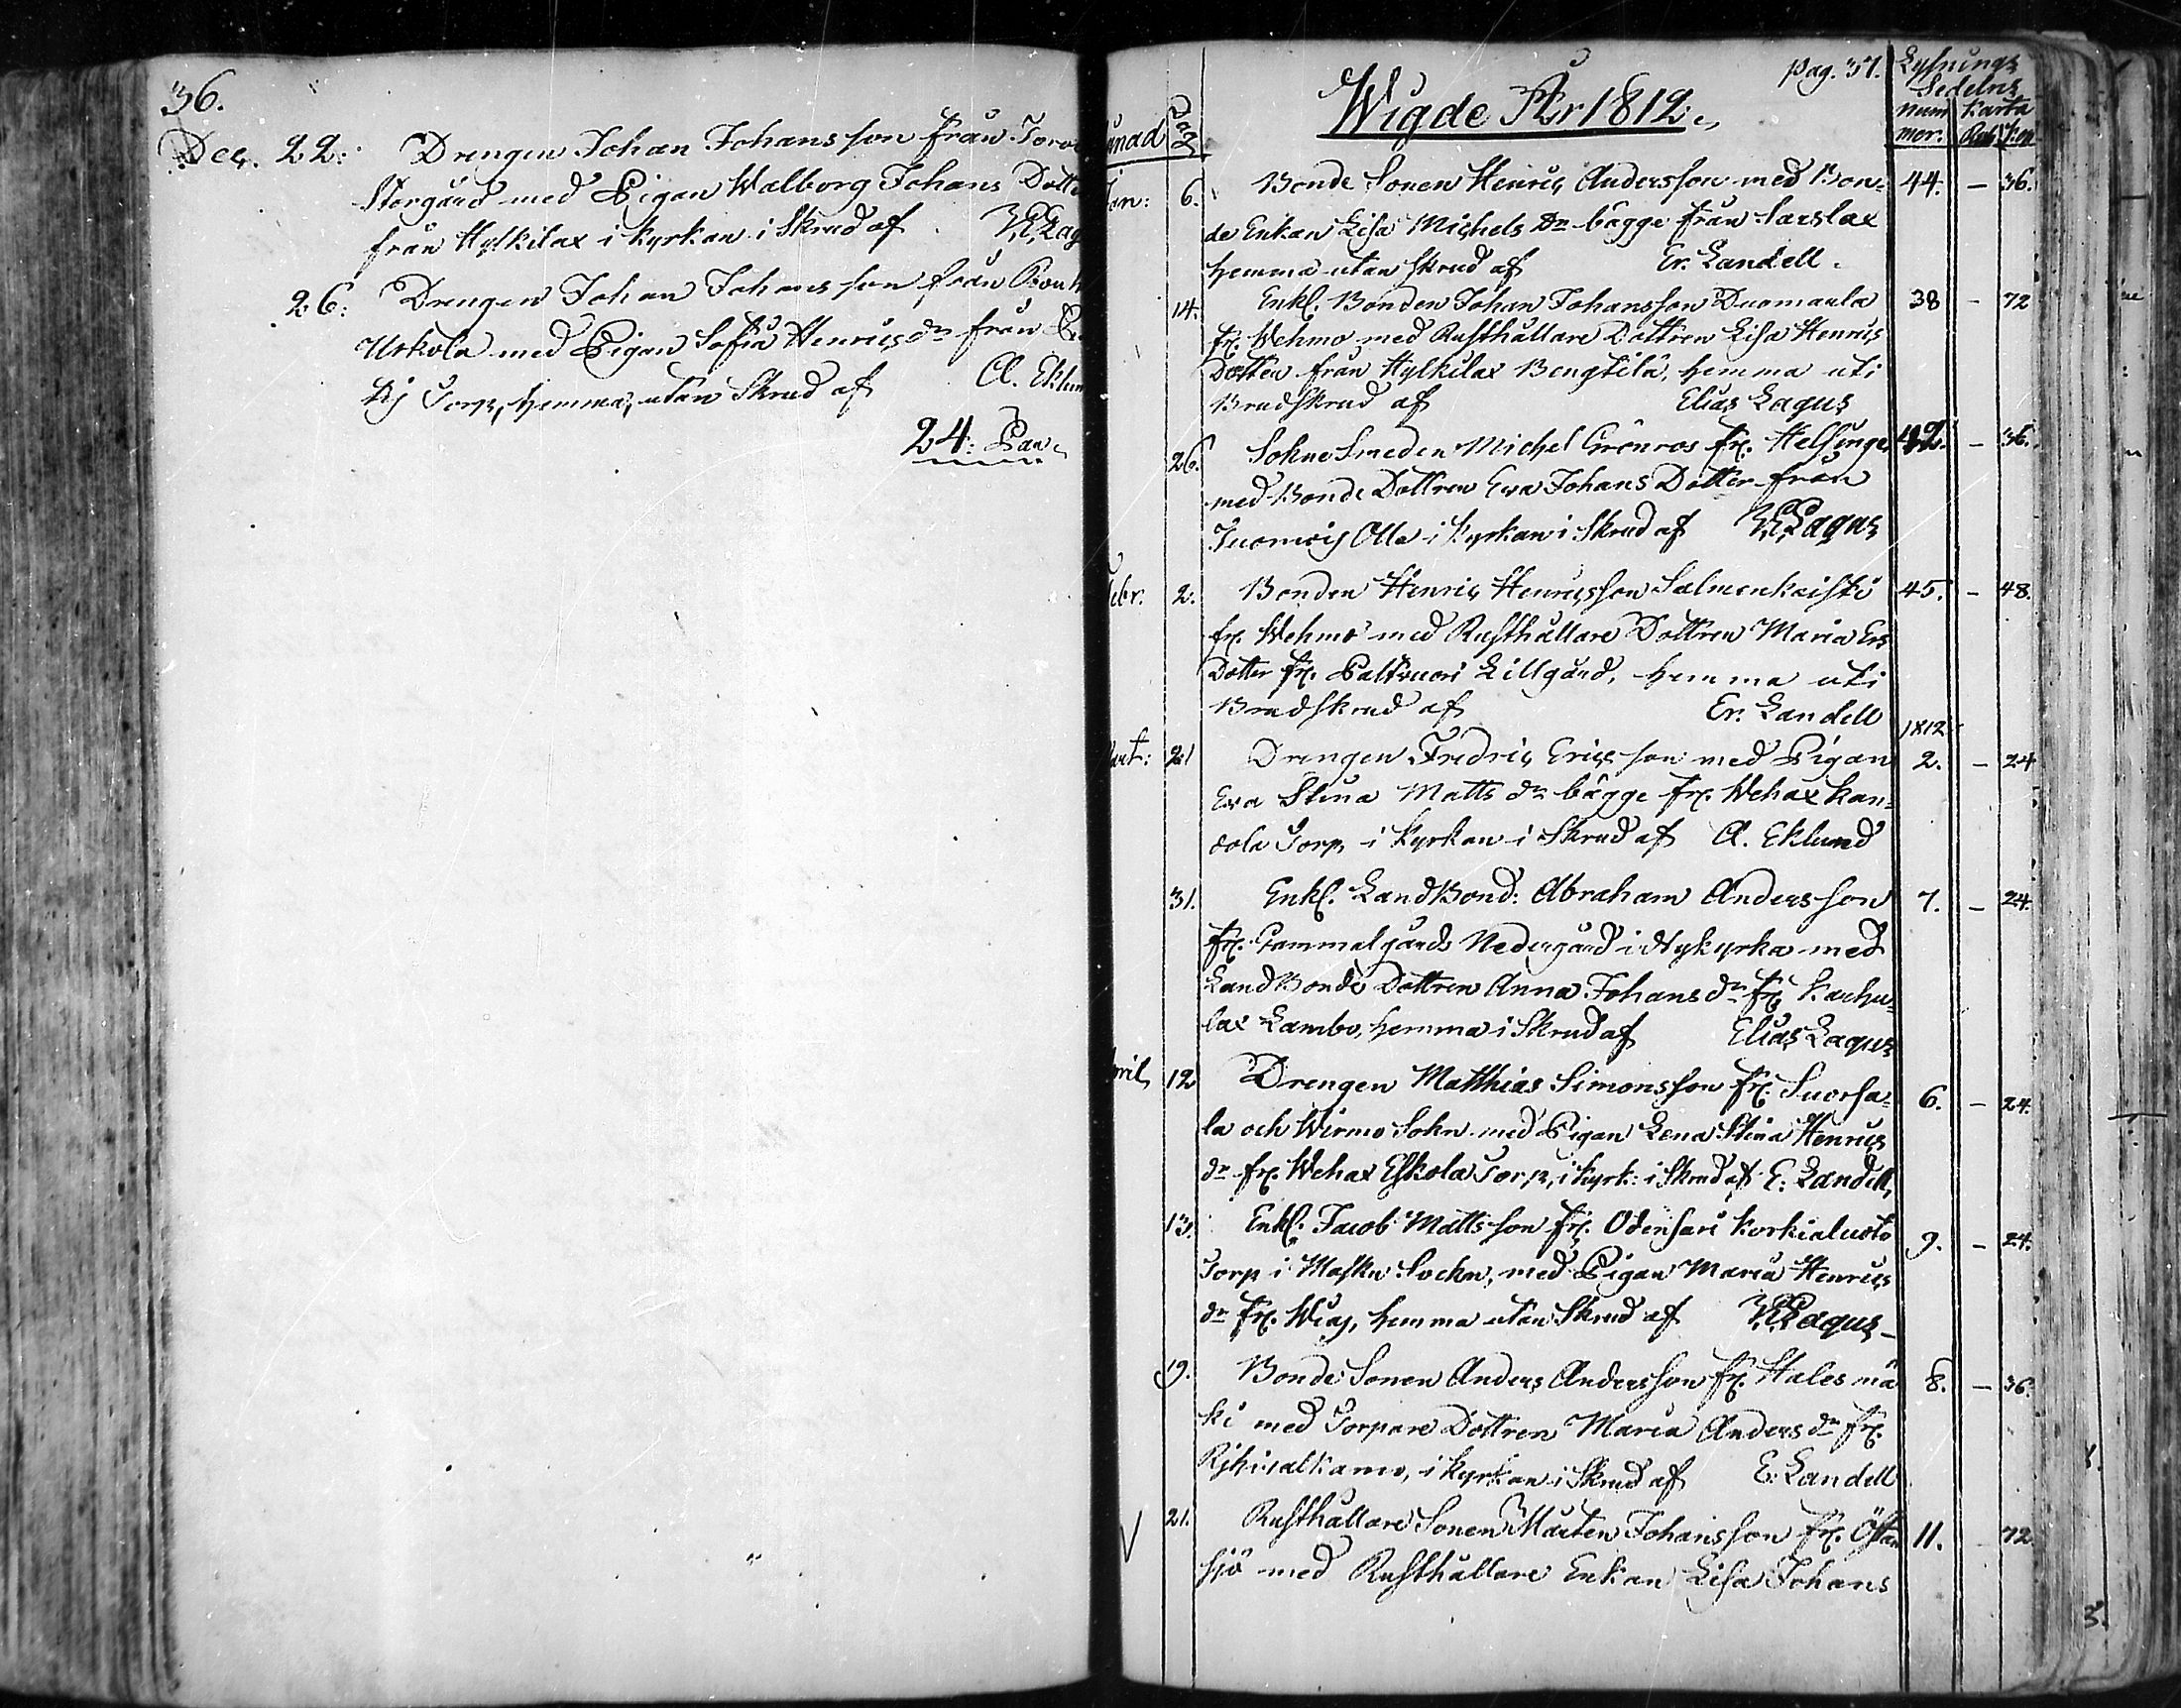 36.
Dec. 22: Drengen Johan Johansson från
Storgård med Pigan Walborg Johans Dotte
från Hylkilax i Kyrkan i Skrud af Lag
26: Drengen Johan Johansson från
Uskola med Pigan Sofia Henrics dr från
Torp, hemma, utan Skrud af A. Eklun
24: Par
pag. 37.
Wigde År 1812.
Lysnings
Sedelns
num Karta
mer. Rub. Kop
unad Dag
Jan: 6. Bonde Sonen Henric Andersson med Bon= 44. - 36.
de Enkan Lisa Michels dr bägge från Sarslax
hemma utan skrud af Er. Landell.
14. Enkl. Bonden Johan Johansson Duomaula 38 - 72
fr. Wehmo med Rusthållare Dottren Lisa Henrics
Dotter från Hylkilax Bengtilä, hemma uti
Brudskrud af Elias Lagus
26. Sokne Smeden Michel Grönros fr. Helsinge 42. - 36.
med Bonde Dottren Eva Johans Dotter från
Olla i Kyrkan i Skrud af Lagus
Febr. 2. Bonden Henric Henricsson Salmenkeisti 45. - 48.
fr. Wehmo med Rusthållare Dottren Maria Ers
Dotter fr. Paltvuori Lillgård, hemma uti
Brudskrud af Er. Landell
1812
Mart: 21 Drengen Fredric Ericsson med Pigan 2. - 24
Eva Stina Matts dr bägge fr. Wehax Kan=
dola Torp, i Kyrkan i Skrud af A. Eklund
31. Enkl. LandBond: Abraham Andersson 7. - 24.
fr. Gammalgårds Nedergård i Nykyrka med
LandBonde Dottren Anna Johans dr fr. Karhu=
lax Lambo, hemma i Skrud af Elias Lagus
April 12 Drengen Matthias Simonsson fr. Suorsa= 6. - 24.
la och Wirmo Sokn med Pigan Lena Stina Henrics
dr fr. Wehax Eskola Torp, i Kyrk: i Skrud af E: Landell,
13. Enkl. Jacob Mattsson fr. Odensari Korkialuoto 9. - 24.
Torp i Masku Sockn, med Pigan Maria Henrics
dr fr. Wiaj, hemma utan Skrud af Lagus
19. Bonde Sonen Anders Andersson fr. Halesmä 8. - 36.
ki med Torpare Dottren Maria Anders dr fr.
Rihisalkamo, i Kyrkan i Skrud af E: Landell
V 21. Rusthållare Sonen Mårten Johansson fr. Östan 11. 72
sjö med Rusthållare Enkan Lisa Johans